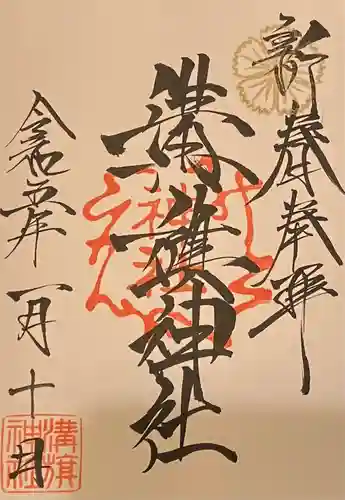 新春奉拝
溝旗神社
令和五年一月十日
溝旗
神社